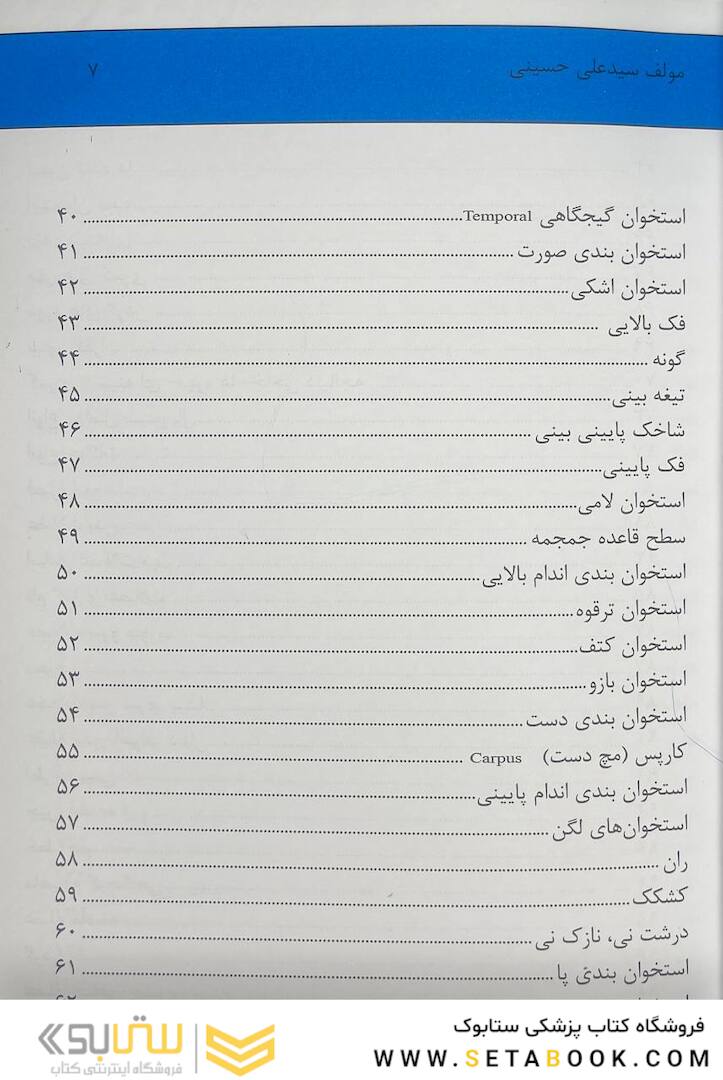 مولف سیدعلی حسینی ۷
استخوان گیجگاهی Temporal ۴۰
استخوان بندی صورت ۴۱
استخوان اشکی ۴۲
فک بالایی ۴۳
گونه ۴۴
تیغه بینی ۴۵
شاخک پایینی بینی ۴۶
فک پایینی ۴۷
استخوان لامی ۴۸
سطح قاعده جمجمه ۴۹
استخوان بندی اندام بالایی ۵۰
استخوان ترقوه ۵۱
استخوان کتف ۵۲
استخوان بازو ۵۳
استخوان بندی دست ۵۴
کارپس (مچ دست) Carpus ۵۵
استخوان بندی اندام پایینی ۵۶
استخوان‌های لگن ۵۷
ران ۵۸
کشکک ۵۹
درشت نی، نازک نی ۶۰
استخوان بندی پا ۶۱
فروشگاه کتاب پزشکی ستابوک
WWW.SETABOOK.COM
ستابوک
فروشگاه اینترنتی کتاب